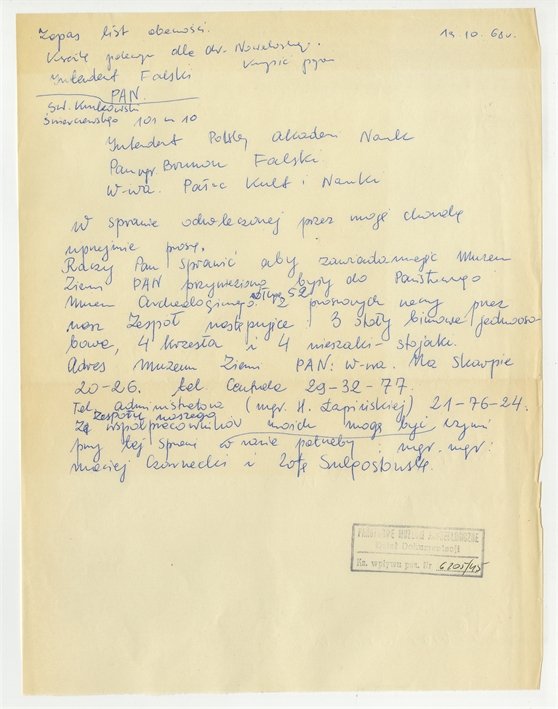 Zapas list obecności.
19.10.68r.
Krzesło pokoju dla dr. Nowakowskiego.
Intendent Falski
PAN.
Św. Krukowski
Świerczewskiego 101 m 10
Intendent Polskiej Akademii Nauk
Pan mgr. Brunon Falski
W-wa. Pałac Kult i Nauki
W sprawie odwleczonej przez moją chorobę
uprzejmie proszę.
Raczy Pan sprawić aby zawiadamiając Muzeum
Ziemi PAN przywieziono były do Państwowego
Muzeum Archeologicznego ul. Długa 52
z pionowych nowy przez
nasz Zespół następujące: 3 stoły biurowe jednooso-
bowe, 4 krzesła i 4 wieszaki-stojaki.
Adres Muzeum Ziemi PAN: W-wa. Na Skarpie
20-26. tel Centrala 29-32-77.
Tel administratora (mgr. H. Łapińskiej) 21-76-24.
Zespołu naszego
Z współpracowników moich mogą być czynni
przy tej sprawie w razie potrzeby: mgr. mgr.
Maciej Czarnecki i Zofia Sulgostowska.
PAŃSTWOWE MUZEUM ARCHEOLOGICZNE
Dział Dokumentacji
Ks. wpływu poz. Nr 6205/45